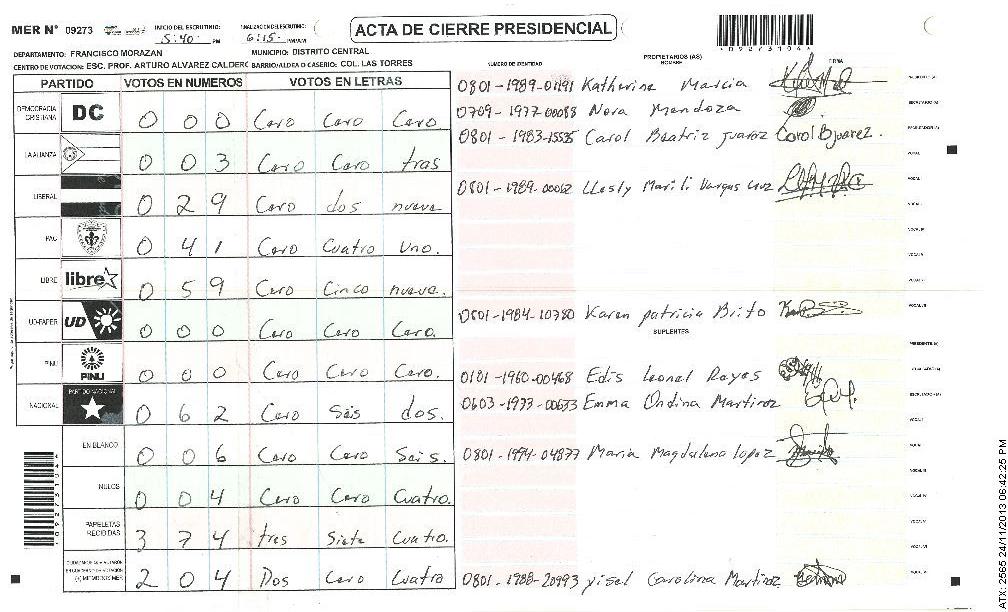 MER Nº 09273 INICIO DEL ESCRUTINIO: 5:40 PM FINALIZACION DEL ESCRUTINIO: 6:15 PM/AM ACTA DE CIERRE PRESIDENCIAL
DEPARTAMENTO: FRANCISCO MORAZAN MUNICIPIO: DISTRITO CENTRAL
CENTRO DE VOTACION: ESC. PROF. ARTURO ALVAREZ CALDERO BARRIO/ALDEA O CASERIO: COL. LAS TORRES
NUMERO DE IDENTIDAD PROPIETARIOS (AS) NOMBRE FIRMA
PARTIDO VOTOS EN NUMEROS VOTOS EN LETRAS
DEMOCRACIA CRISTIANA DC 0 0 0 Cero Cero Cero
LA ALIANZA 0 0 3 Cero Cero tras
LIBERAL 0 2 9 Cero dos nueve
PAC 0 4 1 Cero Cuatro Uno.
LIBRE libre 0 5 9 Cero Cinco nueve.
UD-FAPER UD 0 0 0 Cero Cero Cero.
PINU PINU 0 0 0 Cero Cero Cero.
NACIONAL PARTIDO NACIONAL 0 6 2 Cero Seis dos.
EN BLANCO 0 0 6 Cero Cero Seis.
NULOS 0 0 4 Cero Cero Cuatro.
PAPELETAS RECIBIDAS 3 7 4 tres Siete Cuatro.
(+) MIEMBROS MER 2 0 4 Dos Cero Cuatro
0801-1989-01191 Katherine Marcia
0709-1977-00088 Nora Mendoza
0801-1983-15535 Carol Beatriz Juarez Carol B Juarez.
0801-1989-00062 Llesly Marili Vargas Cruz
0801-1984-10780 Karen patricia Brito
SUPLENTES
0101-1960-00468 Edis Leonel Reyes
0603-1973-00633 Emma Ondina Martinez
0801-1994-04877 Maria Magdalena Lopez
0801-1988-20993 Yisel Carolina Martinez
ATX: 2565 24/11/2013 06:42:25 PM